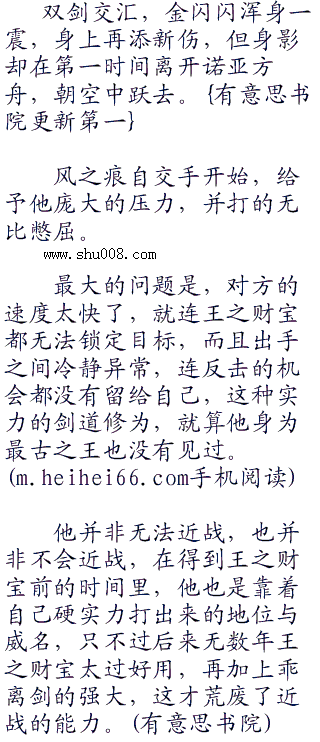 双剑交汇，金闪闪浑身一
震，身上再添新伤，但身影
却在第一时间离开诺亚方
舟，朝空中跃去。{有意思书
院更新第一}
风之痕自交手开始，给
予他庞大的压力，并打的无
比憋屈。
www.shu008.com
最大的问题是，对方的
速度太快了，就连王之财宝
都无法锁定目标，而且出手
之间冷静异常，连反击的机
会都没有留给自己，这种实
力的剑道修为，就算他身为
最古之王也没有见过。
(m.heihei66.com手机阅读)
他并非无法近战，也并
非不会近战，在得到王之财
宝前的时间里，他也是靠着
自己硬实力打出来的地位与
威名，只不过后来无数年王
之财宝太过好用，再加上乖
离剑的强大，这才荒废了近
战的能力。(有意思书院)